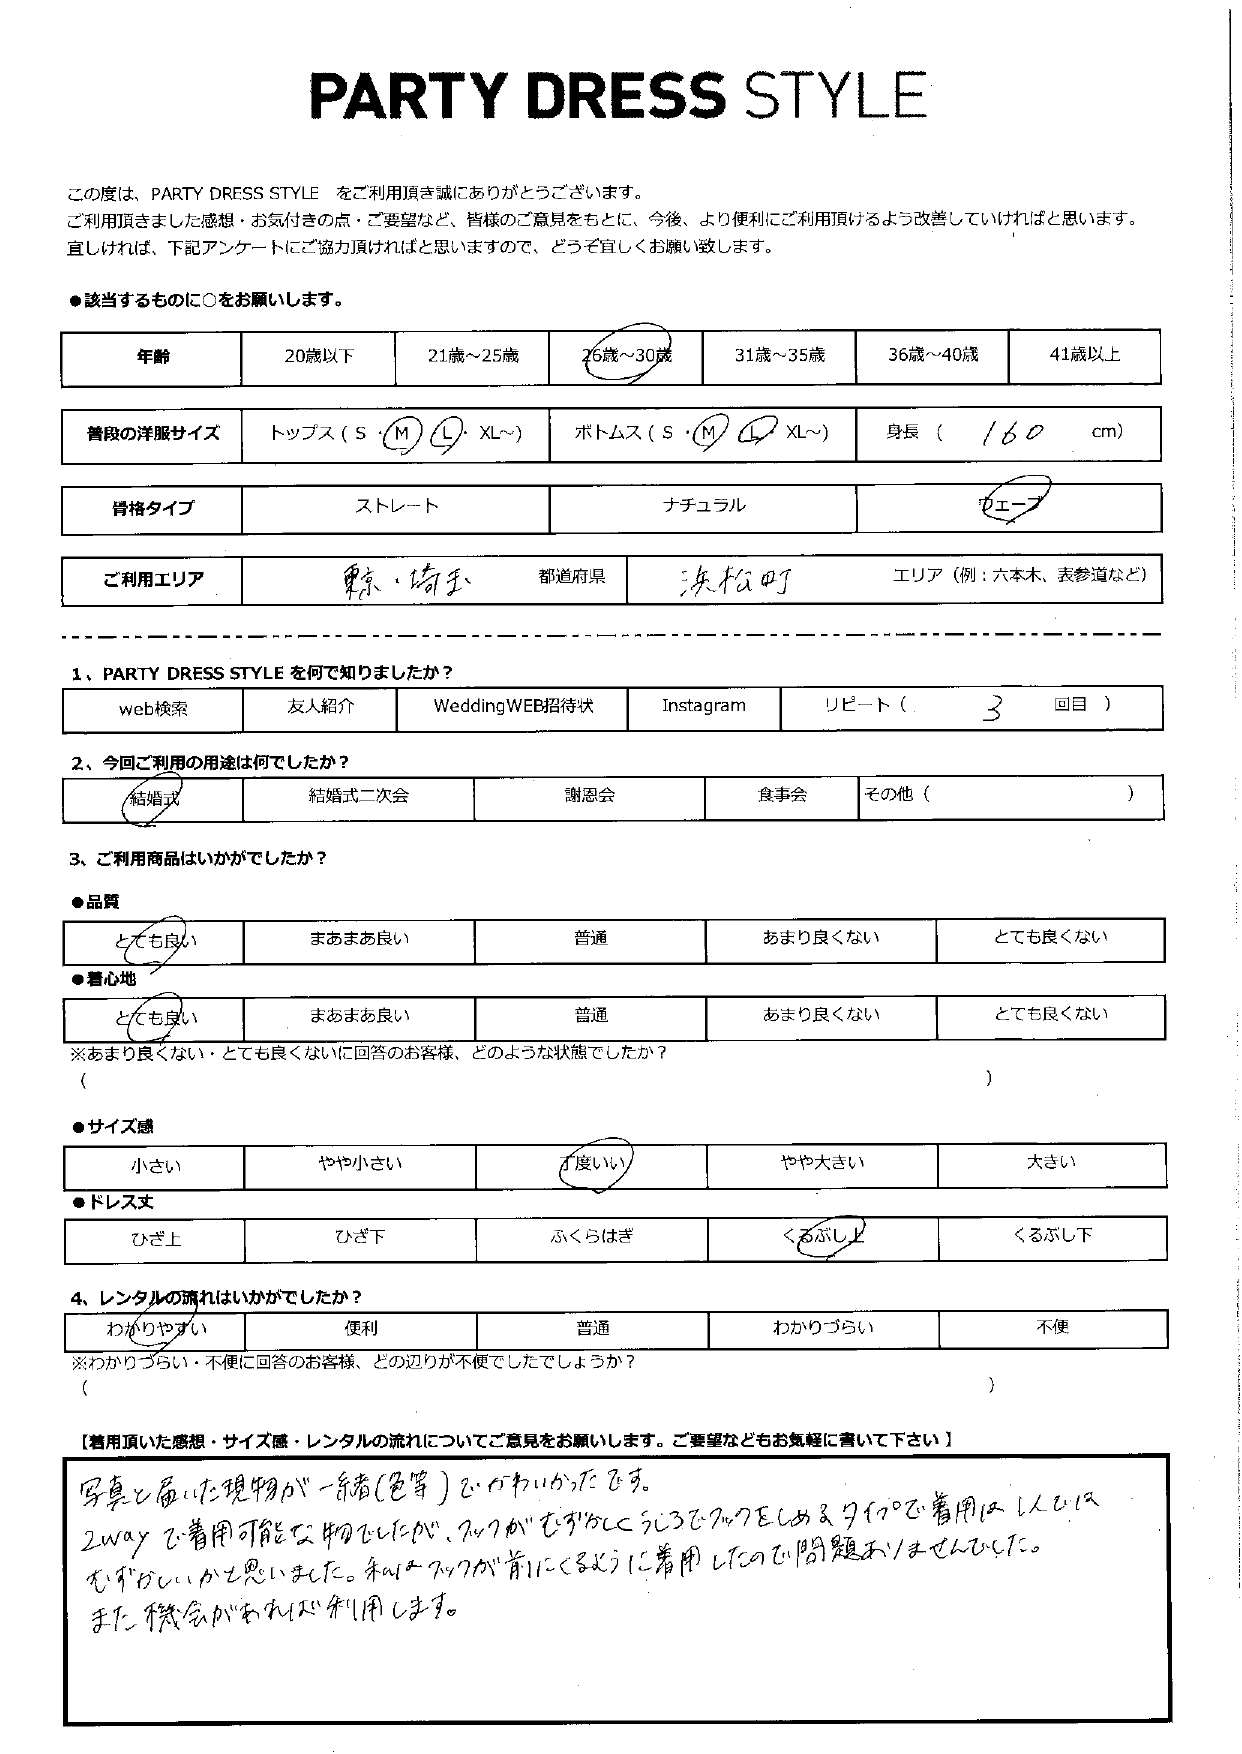 PARTY DRESS STYLE
この度は、PARTY DRESS STYLE をご利用頂き誠にありがとうございます。
ご利用頂きました感想・お気付きの点・ご要望など、皆様のご意見をもとに、今後、より便利にご利用頂けるよう改善していければと思います。
宜しければ、下記アンケートにご協力頂ければと思いますので、どうぞ宜しくお願い致します。
●該当するものに○をお願いします。
年齢 20歳以下 21歳～25歳 26歳～30歳 31歳～35歳 36歳～40歳 41歳以上
普段の洋服サイズ トップス ( S ・ M ・ L ・ XL～) ボトムス ( S ・ M ・ L ・ XL～) 身長 ( 160 cm)
骨格タイプ ストレート ナチュラル ウェーブ
ご利用エリア 東京・埼玉 都道府県 浜松町 エリア（例：六本木、表参道など）
1、PARTY DRESS STYLE を何で知りましたか？
web検索 友人紹介 WeddingWEB招待状 Instagram リピート（ 3 回目 ）
2、今回ご利用の用途は何でしたか？
結婚式 結婚式二次会 謝恩会 食事会 その他（ ）
3、ご利用商品はいかがでしたか？
●品質
とても良い まあまあ良い 普通 あまり良くない とても良くない
●着心地
とても良い まあまあ良い 普通 あまり良くない とても良くない
※あまり良くない・とても良くないに回答のお客様、どのような状態でしたか？
( )
●サイズ感
小さい やや小さい 丁度いい やや大きい 大きい
●ドレス丈
ひざ上 ひざ下 ふくらはぎ くるぶし上 くるぶし下
4、レンタルの流れはいかがでしたか？
わかりやすい 便利 普通 わかりづらい 不便
※わかりづらい・不便に回答のお客様、どの辺りが不便でしたでしょうか？
( )
【着用頂いた感想・サイズ感・レンタルの流れについてご意見をお願いします。ご要望などもお気軽に書いて下さい】
写真と届いた現物が一緒(色等)でかわいかったです。
2wayで着用可能な物でしたが、フックがむずかしくうしろでフックをしめるタイプで着用は1人では
むずかしいかと思いました。私はフックが前にくるように着用したので問題ありませんでした。
また機会があれば利用します。